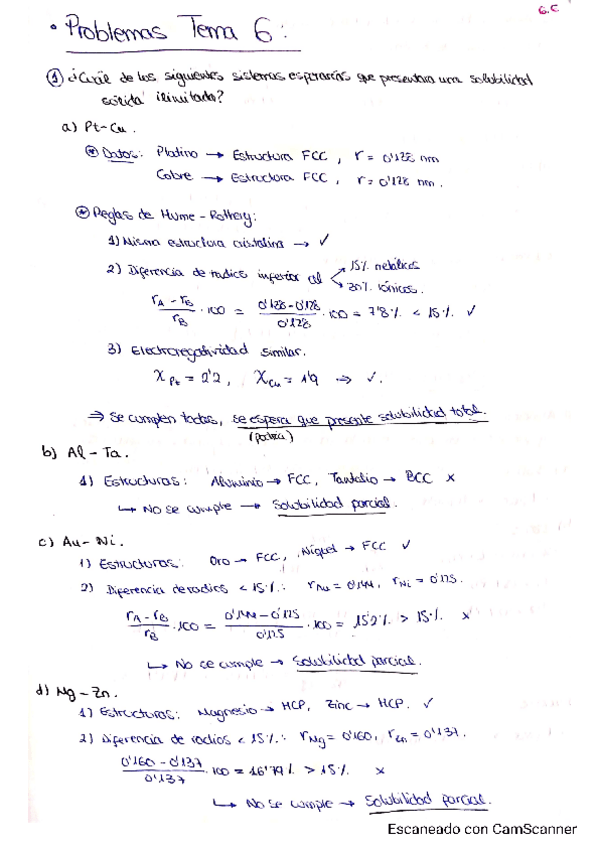 6.C
• Problemas Tema 6:
① ¿Cuál de los siguientes sistemas esperarías que presentara una solubilidad
sólida ilimitada?
a) Pt-Cu.
* Datos: Platino → Estructura FCC, r = 0'138 nm
Cobre → Estructura FCC, r = 0'128 nm.
* Reglas de Hume-Rothery:
1) Misma estructura cristalina → ✓
2) Diferencia de radios inferior al 15% metálicos
30% iónicos.
(rA - rB)/rB · 100 = (0'138 - 0'128)/0'128 · 100 = 7'8% < 15% ✓
3) Electronegatividad similar.
X Pt = 2'2, X Cu = 1'9 ⇒ ✓.
⇒ Se cumplen todas, se espera que presente solubilidad total.
b) Al - Ta.
1) Estructuras: Aluminio → FCC, Tantalio → BCC x
↳ No se cumple → Solubilidad parcial.
c) Au - Ni.
1) Estructuras: Oro → FCC, Níquel → FCC ✓
2) Diferencia de radios < 15%: rAu = 0'144, rNi = 0'125.
(rA - rB)/rB · 100 = (0'144 - 0'125)/0'125 · 100 = 15'2% > 15% x
↳ No se cumple → Solubilidad parcial.
d) Mg - Zn.
1) Estructuras: Magnesio → HCP, Zinc → HCP. ✓
2) Diferencia de radios < 15%: rMg = 0'160, rZn = 0'137.
(0'160 - 0'137)/0'137 · 100 = 16'79% > 15% x
↳ No se cumple → Solubilidad parcial.
Escaneado con CamScanner